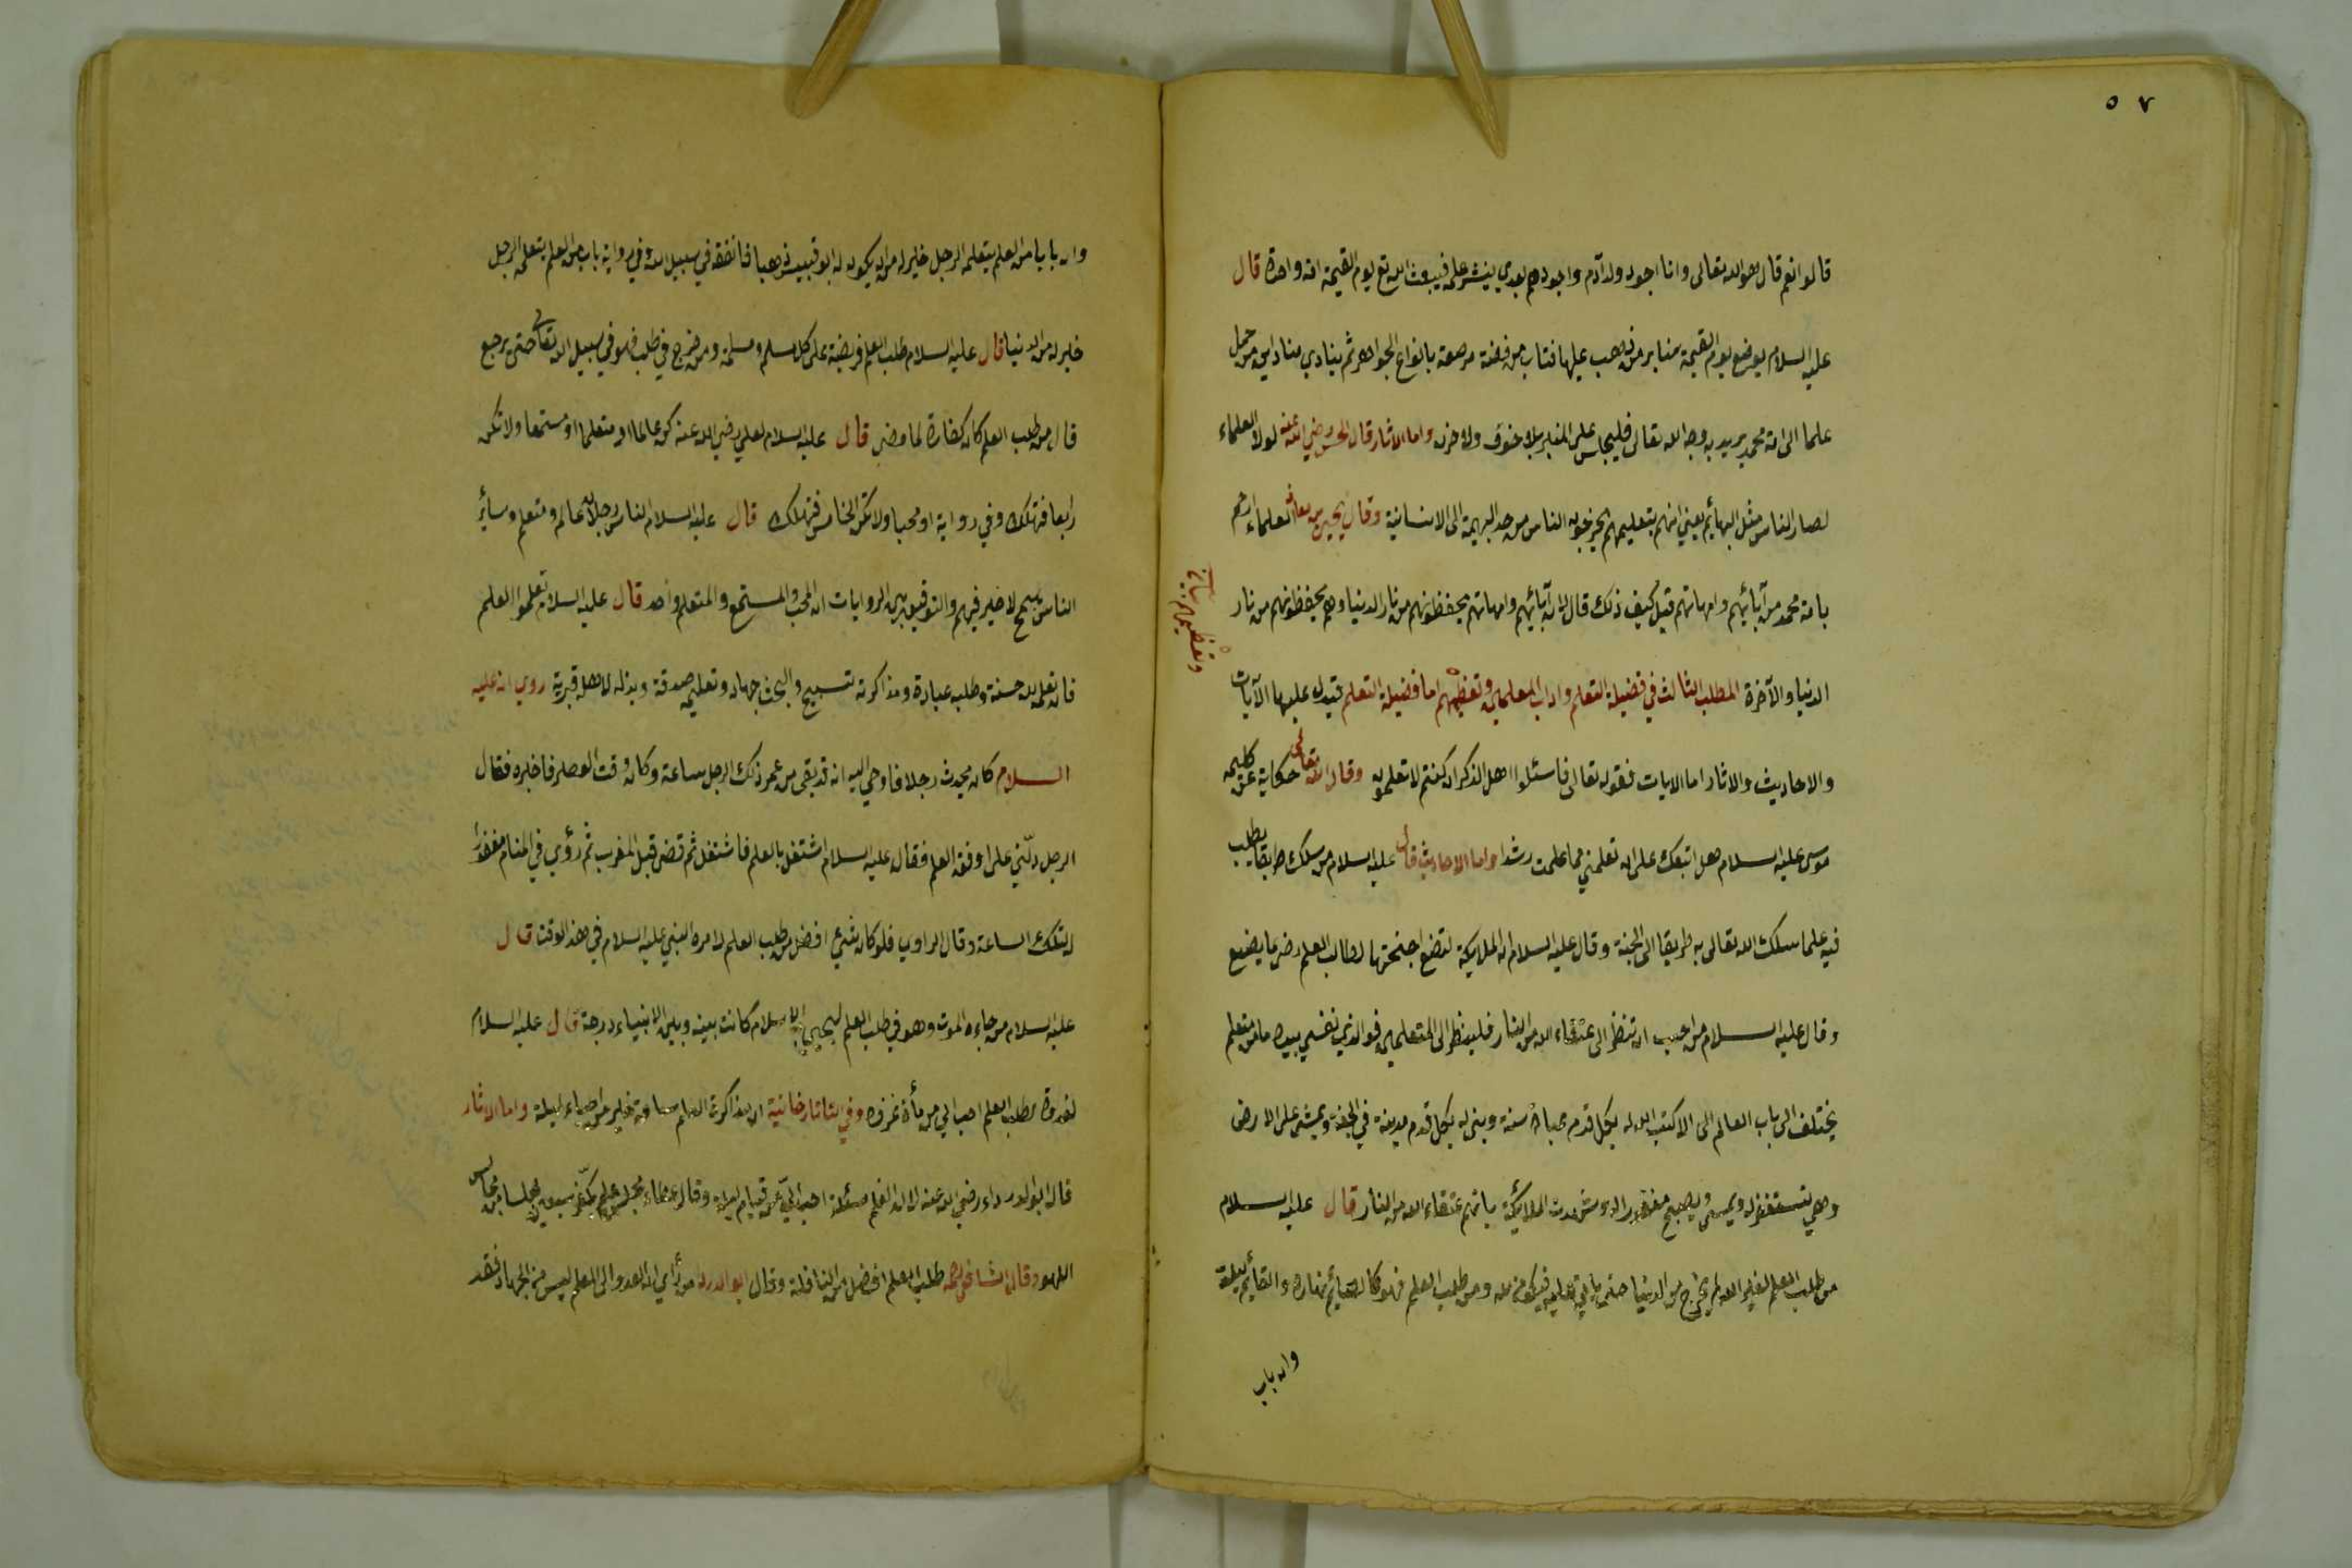 ٥٧
قالوا نعم قال هو الله تعالى وانا اجود ولد آدم واجودهم بعدي ينشر علمه فيبعث الله تع يوم القيمة امة واحدة قال
عليه السلام يوضع يوم القيمة منابر من ذهب عليها قباب من فضة مرصعة بانواع الجواهر ثم ينادي منادا اين من حمل
علما الى امة محمد يريد به وجه الله تعالى فليجلس على المنبر بلا خوف ولا حزن واما الاثار قال الحسن رضي الله عنه لولا العلماء
لصار الناس مثل البهائم يعني انهم بتعليمهم يخرجون الناس من حد البهيمة الى الانسانية وقال يحيى بن معاذ العلماء ارحم
بامة محمد من آبائهم وامهاتهم قيل كيف ذلك قال لان آبائهم وامهاتهم يحفظونهم من نار الدنيا وهم يحفظونهم من نار
الدنيا والآخرة المطلب الثالث في فضيلة التعلم واداب المعلمين وتعظيمهم اما فضيلة التعلم فتيدل عليها الآيات
والاحاديث والاثار اما الايات فقوله تعالى فاسئلوا اهل الذكر ان كنتم لا تعلمون وقال الله تعالى حكاية عن كليمه
موسى عليه السلام هل اتبعك على ان تعلمني مما علمت رشدا واما الاحاديث قال عليه السلام من سلك طريقا يطلب
فيه علما سلك الله تعالى به طريقا الى الجنة وقال عليه السلام ان الملايكة لتضع اجنحتها لطالب العلم رضى بما يصنع
وقال عليه السلام من احب ان تنظر الى عتقاء الله من النار فلينظر الى المتعلمين فوالذي نفسي بيده ما من متعلم
يختلف الى باب العالم الا كتب الله له بكل قدم عبادة سنة وبنى له بكل قدم مدينة في الجنة ويمشي على الارض
وهي تستغفر له ويمسي ويصبح مغفورا له وشهدت الملائكة بانهم عتقاء الله من النار قال عليه السلام
من طلب العلم لغير الله لم يخرج من الدنيا حتى ياتي عليه فيكون لله ومن طلب العلم فهو كالصائم نهاره والقائم ليله
وان باب
وان بابا من العلم يتعلمه الرجل خير له من ان يكون له ابو قبيس ذهبا فانفقه في سبيل الله وفي رواية باب من العلم يتعلمه الرجل
خير له من الدنيا قال عليه السلام طلب العلم فريضة على كل مسلم ومسلمة ومن خرج في طلب فهو في سبيل الله تعالى حتى يرجع
قال من طلب العلم كان كفارة لما مضى قال عليه السلام لعلي رضي الله عنه كن عالما او متعلما او مستمعا ولا تكن
رابعا فتهلك وفي رواية او محبا ولا تكن الخامس فتهلك قال عليه السلام الناس رجلان عالم ومتعلم وسائر
الناس همج لا خير فيهم والتوفيق بين الروايات ان المحب والمستمع والمتعلم واحد قال عليه السلام تعلموا العلم
فان تعلمه لله حسنة وطلبه عبادة ومذاكرته تسبيح والبحث جهاد وتعليمه صدقة وبذله لاهله قربة روي انه عليه
السلام كان يحدث رجلا فاوحي اليه انه قد بقى من عمر ذلك الرجل ساعة وكان وقت العصر فاخبره فقال
الرجل دلّني على اوفق العلم فقال عليه السلام اشتغل بالعلم فاشتغل ثم قضى قبل المغرب ثم رؤي في المنام مغفورا
لتلك الساعة وقال الراوي فلو كان شيئ افضل من طلب العلم لامره النبي عليه السلام في هذ الوقت قال
عليه السلام من جاءه الموت وهو في طلب العلم ليحيي الاسلام كانت بينه وبين الانبياء درجة قال عليه السلام
لغدوة لطلب العلم احب الي من مأة غزوة وفي التاتارخانية ان مذاكرة العلم ساعة خير من احياء ليلة واما الاثار
قال ابو الدرداء رضي الله عنه لان اتعلم مسئلة احب اليّ من قيام ليلة وقال عطاء مجلس علم يكفّر سبعين مجلسا من مجالس
اللهو وقال الشافعي رحمه طلب العلم افضل من النافلة وقال ابو الدردا من رأي ان الغدو الى العلم ليس من الجهاد فقد